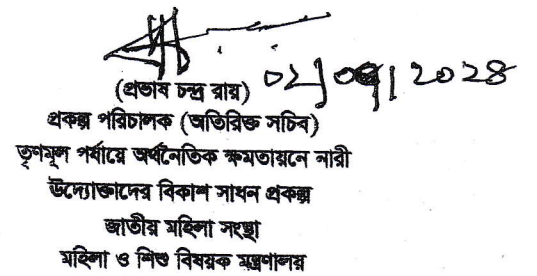 (প্রভাষ চন্দ্র রায়)
প্রকল্প পরিচালক (অতিরিক্ত সচিব)
তৃণমূল পর্যায়ে অর্থনৈতিক ক্ষমতায়নে নারী
উদ্যোক্তাদের বিকাশ সাধন প্রকল্প
জাতীয় মহিলা সংস্থা
মহিলা ও শিশু বিষয়ক মন্ত্রণালয়